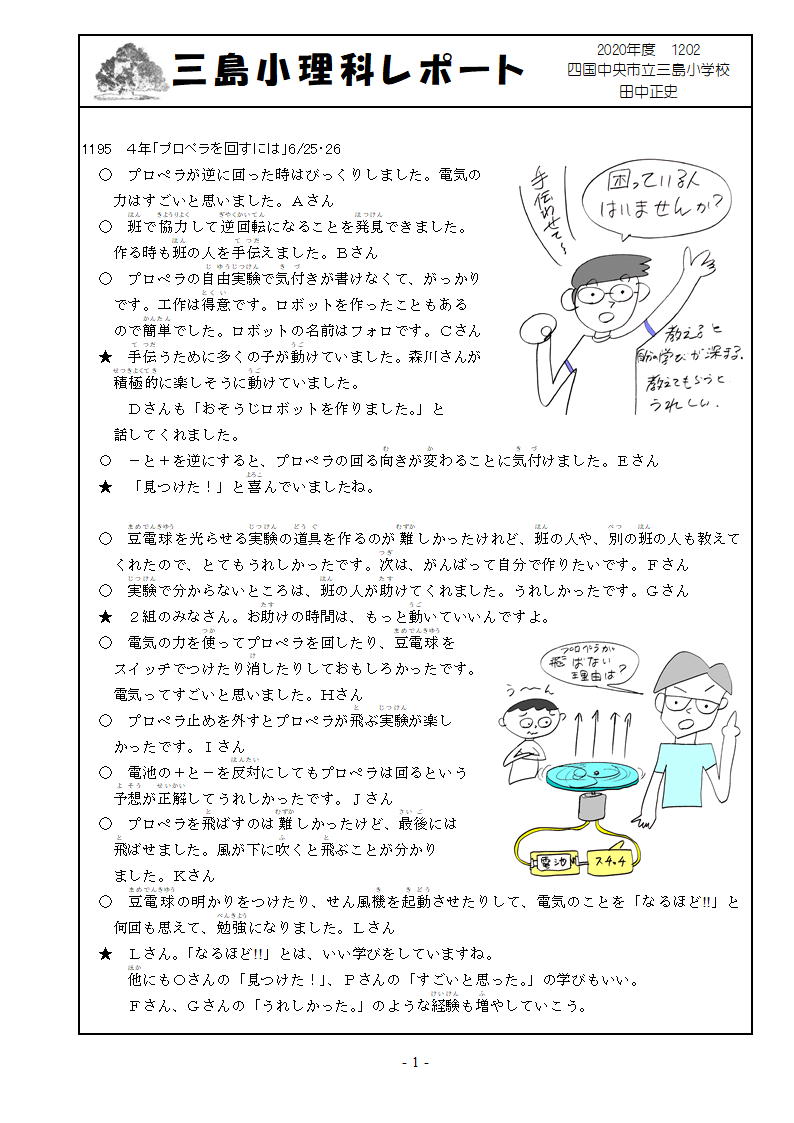 三島小理科レポート
2020年度　1202
四国中央市立三島小学校
田中正史
1195　４年「プロペラを回すには」6/25・26
○　プロペラが逆に回った時はびっくりしました。電気の
力はすごいと思いました。Ａさん
○　班で協力して逆回転になることを発見できました。
作る時も班の人を手伝えました。Ｂさん
○　プロペラの自由実験で気付きが書けなくて、がっかり
です。工作は得意です。ロボットを作ったこともある
ので簡単でした。ロボットの名前はフォロです。Ｃさん
★　手伝うために多くの子が動けていました。森川さんが
積極的に楽しそうに動けていました。
Ｄさんも「おそうじロボットを作りました。」と
話してくれました。
手伝わせて～
困っている人
はいませんか？
教えると
自分の学びが深まる。
教えてもらうと
うれしい。
○　－と＋を逆にすると、プロペラの回る向きが変わることに気付けました。Ｅさん
★　「見つけた！」と喜んでいましたね。
○　豆電球を光らせる実験の道具を作るのが難しかったけれど、班の人や、別の班の人も教えて
くれたので、とてもうれしかったです。次は、がんばって自分で作りたいです。Ｆさん
○　実験で分からないところは、班の人が助けてくれました。うれしかったです。Ｇさん
★　２組のみなさん。お助けの時間は、もっと動いていいんですよ。
○　電気の力を使ってプロペラを回したり、豆電球を
スイッチでつけたり消したりしておもしろかったです。
電気ってすごいと思いました。Ｈさん
○　プロペラ止めを外すとプロペラが飛ぶ実験が楽し
かったです。Ｉさん
○　電池の＋と－を反対にしてもプロペラは回るという
予想が正解してうれしかったです。Ｊさん
○　プロペラを飛ばすのは難しかったけど、最後には
飛ばせました。風が下に吹くと飛ぶことが分かり
ました。Ｋさん
プロペラが
飛ばない
理由は？
う～ん
電池
スイッチ
○　豆電球の明かりをつけたり、せん風機を起動させたりして、電気のことを「なるほど!!」と
何回も思えて、勉強になりました。Ｌさん
★　Ｌさん。「なるほど!!」とは、いい学びをしていますね。
他にもＯさんの「見つけた！」、Ｐさんの「すごいと思った。」の学びもいい。
Ｆさん、Ｇさんの「うれしかった。」のような経験も増やしていこう。
- 1 -